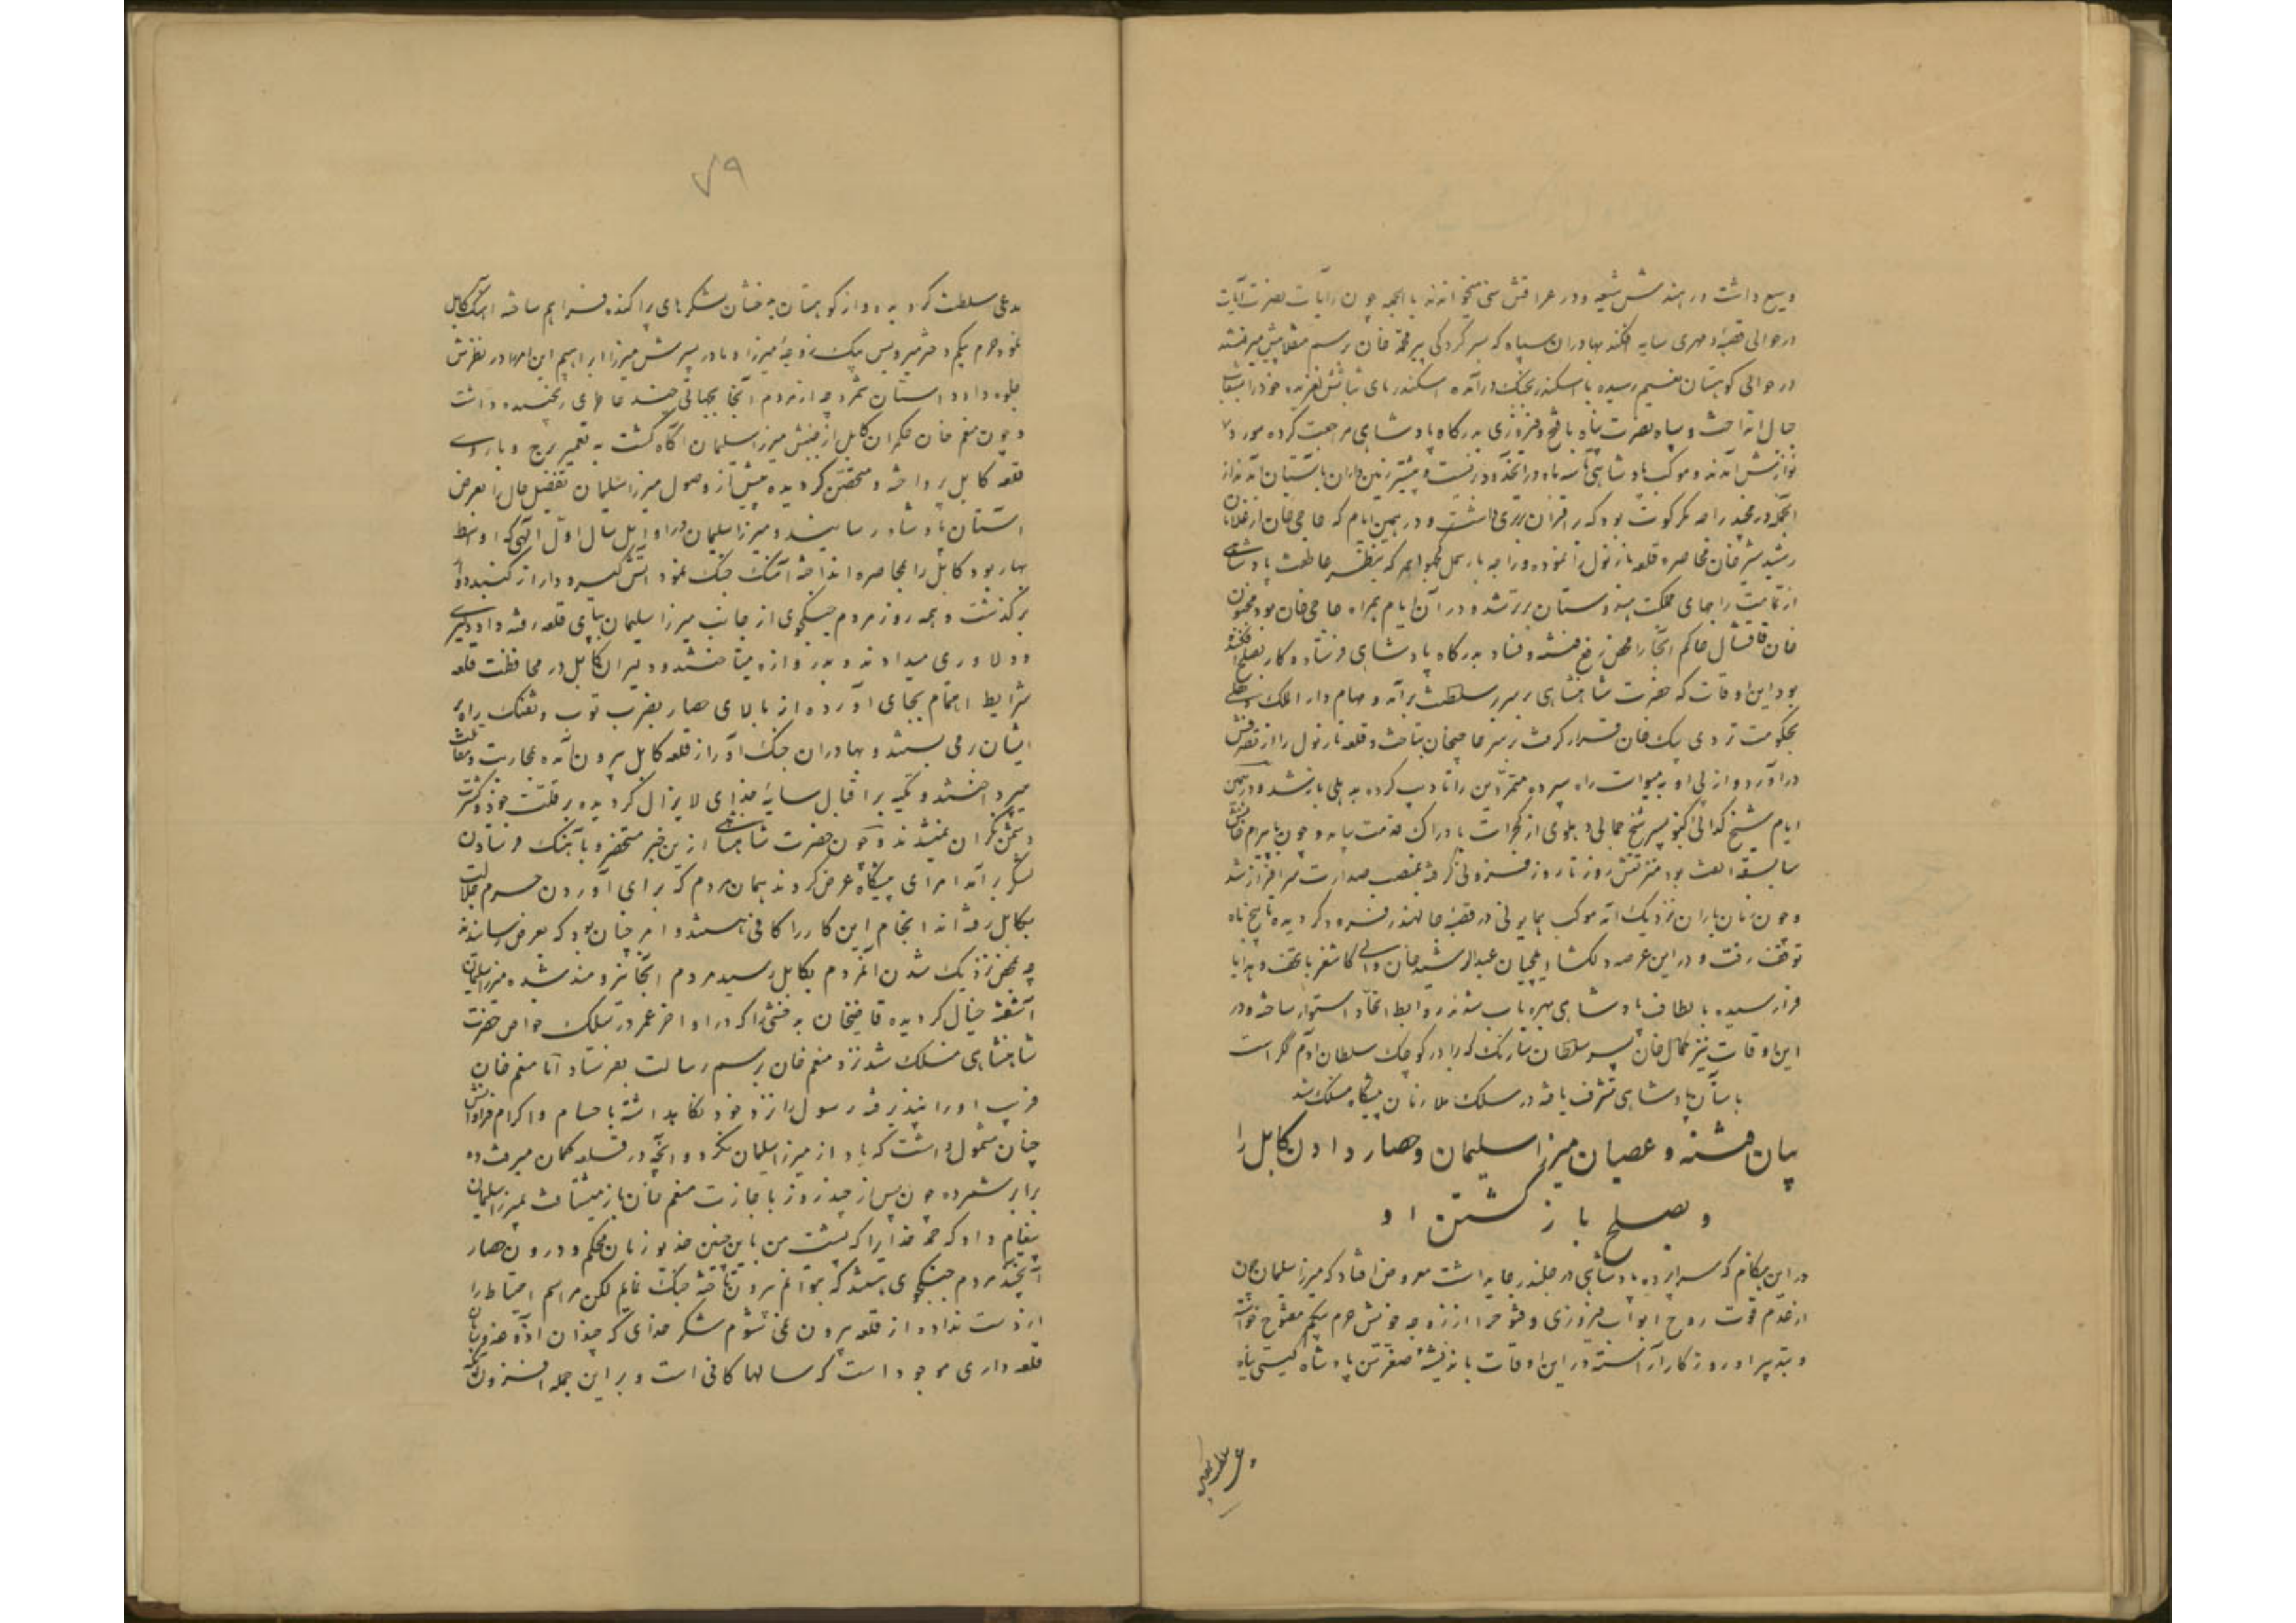 وسیع داشت در هند شش شیعه و در عراقش سنی میخواندند بالجمله چون رایات نصرت آیات
در حوالی قصبه دمهری سایه افکند بهادران سپاه که بسرکردگی پیر محمد خان برسم منقلا پیش میرفتند
در حوالی کوهستان بغنیم رسیده با اسکندر بجنگ درآمده اسکندر پای ثباتش لغزیده خود را بشعاب
جبال انداخت و سپاه نصرت پناه با فتح و فیروزی بدرگاه پادشاهی مراجعت کرده مورد
نوازش آمدند و موکب پادشاهی تا سه ماه در آنحدود درنشست و بیشتر زمین داران بآستان آمدند از
آنجمله رامچند راجه نگرکوت بود که بر اقران برتری داشت و در همین ایام که حاجی خان از غلامان
رشید شیرخان محاصره قلعه نارنول را نموده و راجه بارمل کچواهه که بنظر عاطفت پادشاهی
از تمامت راجهای مملکت هندوستان برتر شد و در آن ایام همراه حاجی خان بود مجنون
خان قاقشال حاکم آنجا را محض رفع فتنه و فساد بدرگاه پادشاهی فرستاد و کار بصلح افکنده
بود این اوقات که حضرت شاهنشاهی بر سریر سلطنت برآمد و مهام دار الملک دهلی
بحکومت تردی بیک خان قرار گرفت بر سر حاجیخان بتاخت و قلعه نارنول را از تصرفش
درآورد و از پی او به میوات راه سپرده متمردین را تادیب کرده به دهلی باز شد و در همین
ایام شیخ گدائی کنبو پسر شیخ جمالی دهلوی از گجرات بادراک خدمت بیامد و چون با بیرام خانش
سابقه الفت بود منزلتش روز تا روز فزونی گرفته بمنصب صدارت سرافراز شد
و چون زمان باران نزدیک آمد موکب همایونی در قصبه جالندر فرود گردیده تا پنج ماه
توقف رفت و در این عرصه دلگشا ایلچیان عبدالرشید خان والی کاشغر با تحف و هدایا
فرا رسیده بالطاف پادشاهی بهره یاب شدند و روابط اتحاد استوار ساخته و در
این اوقات نیز کمال خان پسر سلطان سارنگ که برادر کوچک سلطان آدم گکر است
بآستان پادشاهی تشرف یافته در سلک ملازمان پیشگاه منسلک شد
بیان فتنه و عصیان میرزا سلیمان و حصار دادن کابل را
و بصلح باز گشتن او
در این هنگام که سراپرده پادشاهی در جلندر جای داشت معروض افتاد که میرزا سلیمان چون
از قدم قوت روح ابواب فیروزی و فتوح را از زوجه خویش حرم بیگم مفتوح خواسته
و بتدبیر او روزگار آراسته در این اوقات باندیشه صغر سن پادشاه گیتی پناه
۷۹
مدعی سلطنت گردیده و از کوهستان بدخشان لشکرهای پراکنده فراهم ساخته آهنگ کابل
نمود حرم بیگم دختر میر ویس بیک زوجه میرزا و مادر پسرش میرزا ابراهیم این امر را در نظرش
جلوه داد و آسان شمرد چه از مردم آنجا بجهاتی چند خاطری رنجیده داشت
و چون منعم خان حکمران کابل از جنبش میرزا سلیمان آگاه گشت به تعمیر برج و باروی
قلعه کابل پرداخته و متحصن گردیده پیش از وصول میرزا سلیمان تفصیل حال را بعرض
آستان پادشاه رسانیند و میرزا سلیمان در اوایل سال اول الهی که اوسط
بهار بود کابل را بمحاصره انداخته آهنگ جنگ نمود آتش گیر و دار از گنبد دوار
برگذشت و همه روز مردم جنگجوی از جانب میرزا سلیمان بپای قلعه رفته داد دلیری
و دلاوری میدادند و بدروازه میتاختند و دلیران کابل در محافظت قلعه
شرایط اهتمام بجای آورده از بالای حصار بضرب توپ و تفنگ راه بر
ایشان می بستند و بهادران جنگ آور از قلعه کابل بیرون آمده بمحاربت و مقاتلت
میپرداختند و تکیه بر اقبال سایه خدای لایزال کردیده بر قلت خود و کثرت
دشمن نگران نمیشدند و چون حضرت شاهنشاهی از این خبر مستحضر و بآهنگ فرستادن
لشکر برآمد امرای پیشگاه عرض کردند همان مردم که برای آوردن حرم جلالت
بکابل رفته اند انجام این کار را کافی هستند و امر چنان بود که بعرض رسانیدند
چه بمحض نزدیک شدن آنمردم بکابل رسید مردم آنجا نیرومند شده میرزا سلیمان
آشفته خیال گردیده قاضیخان بدخشی را که در اواخر عمر در سلک خواص حضرت
شاهنشاهی منسلک شد نزد منعم خان برسم رسالت بفرستاد اما منعم خان
فریب او را نپذیرفته رسول را نزد خود نگاهداشته باحسام و اکرام فراوانش
چنان مشمول داشت که یاد از میرزا سلیمان نکرد و آنچه در قلعه گمان میرفت ده
برابر شمرده چون پس از چند روز باجازت منعم خان باز میشتافت بمیرزا سلیمان
پیغام داد که حمد خدا را که پشت من باین چنین خدیو زمان محکم و درون حصار
آنچند مردم جنگجوی هستند که بتوانم بیرون تاخته جنگ نمایم لکن مراسم احتیاط را
از دست نداده از قلعه بیرون نمی شوم شکر خدای که چندان آذوقه و سامان
قلعه داری موجود است که سالها کافی است و بر این جمله افزون آنکه